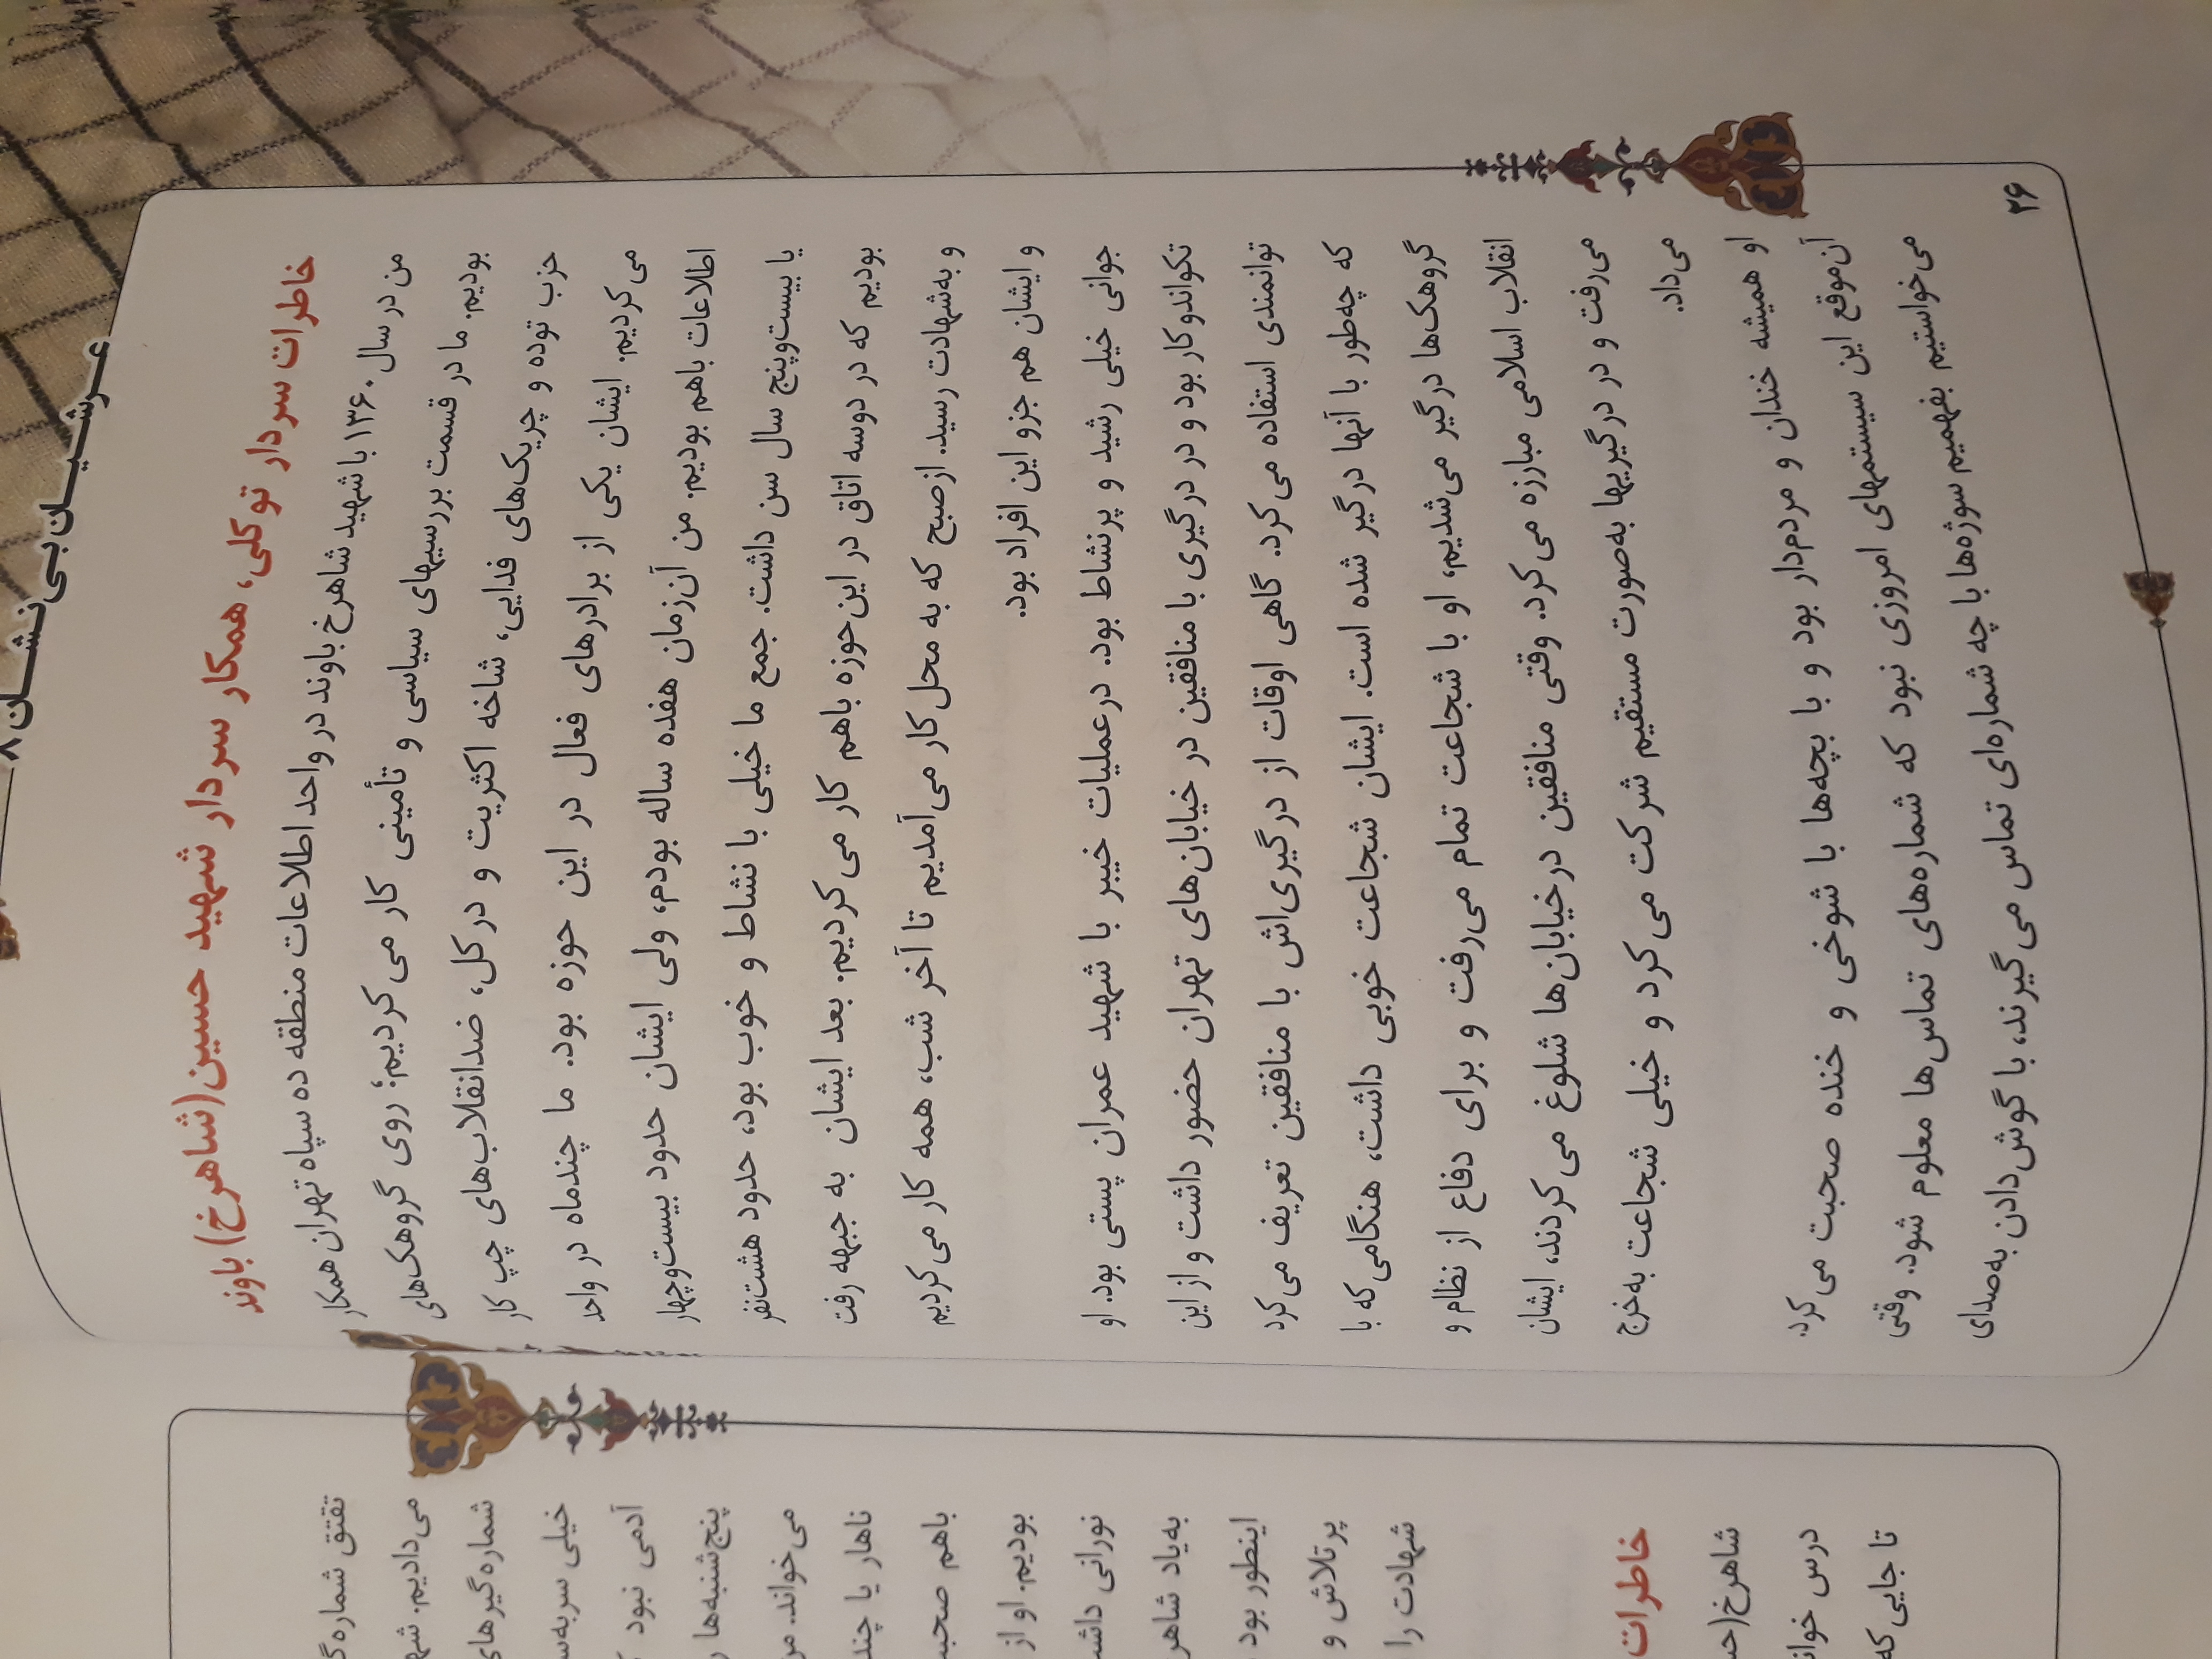 عرشیان بی‌نشان ۸
خاطرات سردار توکلی، همکار سردار شهید حسین(شاهرخ) باوند
من در سال ۱۳۶۰ با شهید شاهرخ باوند در واحد اطلاعات منطقه ده سپاه تهران همکار
بودیم. ما در قسمت بررسیهای سیاسی و تأمینی کار می‌کردیم؛ روی گروهک‌های
حزب توده و چریک‌های فدایی، شاخه اکثریت و در کل، ضدانقلاب‌های چپ کار
می‌کردیم. ایشان یکی از برادرهای فعال در این حوزه بود. ما چندماه در واحد
اطلاعات باهم بودیم. من آن‌زمان هفده ساله بودم، ولی ایشان حدود بیست‌وچهار
یا بیست‌وپنج سال سن داشت. جمع ما خیلی با نشاط و خوب بود، حدود هشت‌نفر
بودیم که در دوسه اتاق در این‌حوزه باهم کار می‌کردیم. بعد ایشان به جبهه رفت
و به‌شهادت رسید. ازصبح که به محل کار می‌آمدیم تا آخر شب، همه کار می‌کردیم
و ایشان هم جزو این افراد بود.
جوانی خیلی رشید و پرنشاط بود. درعملیات خیبر با شهید عمران پستی بود. او
تکواندوکار بود و در درگیری با منافقین در خیابان‌های تهران حضور داشت و از این
توانمندی استفاده می‌کرد. گاهی اوقات از درگیری‌اش با منافقین تعریف می‌کرد
که چه‌طور با آنها درگیر شده است. ایشان شجاعت خوبی داشت، هنگامی‌که با
گروهک‌ها درگیر می‌شدیم، او با شجاعت تمام می‌رفت و برای دفاع از نظام و
انقلاب اسلامی مبارزه می‌کرد. وقتی منافقین درخیابان‌ها شلوغ می‌کردند، ایشان
می‌رفت و در درگیریها به‌صورت مستقیم شرکت می‌کرد و خیلی شجاعت به‌خرج
می‌داد.
او همیشه خندان و مردم‌دار بود و با بچه‌ها با شوخی و خنده صحبت می‌کرد.
آن‌موقع این سیستمهای امروزی نبود که شماره‌های تماس‌ها معلوم شود. وقتی
می‌خواستیم بفهمیم سوژه‌ها با چه شماره‌ای تماس می‌گیرند، با گوش‌دادن به‌صدای
۲۶
تقتق شماره
می‌دادیم.
شماره‌گیرهای
خیلی
آدمی نبود
پنج‌شنبه‌ها
می‌خواند.
ناهار یا چند
باهم
بودیم. او از
نورانی
به‌یاد
اینطور بود
پرتلاش و
شهادت را
خاطرات
شاهرخ
درس
تا جایی که